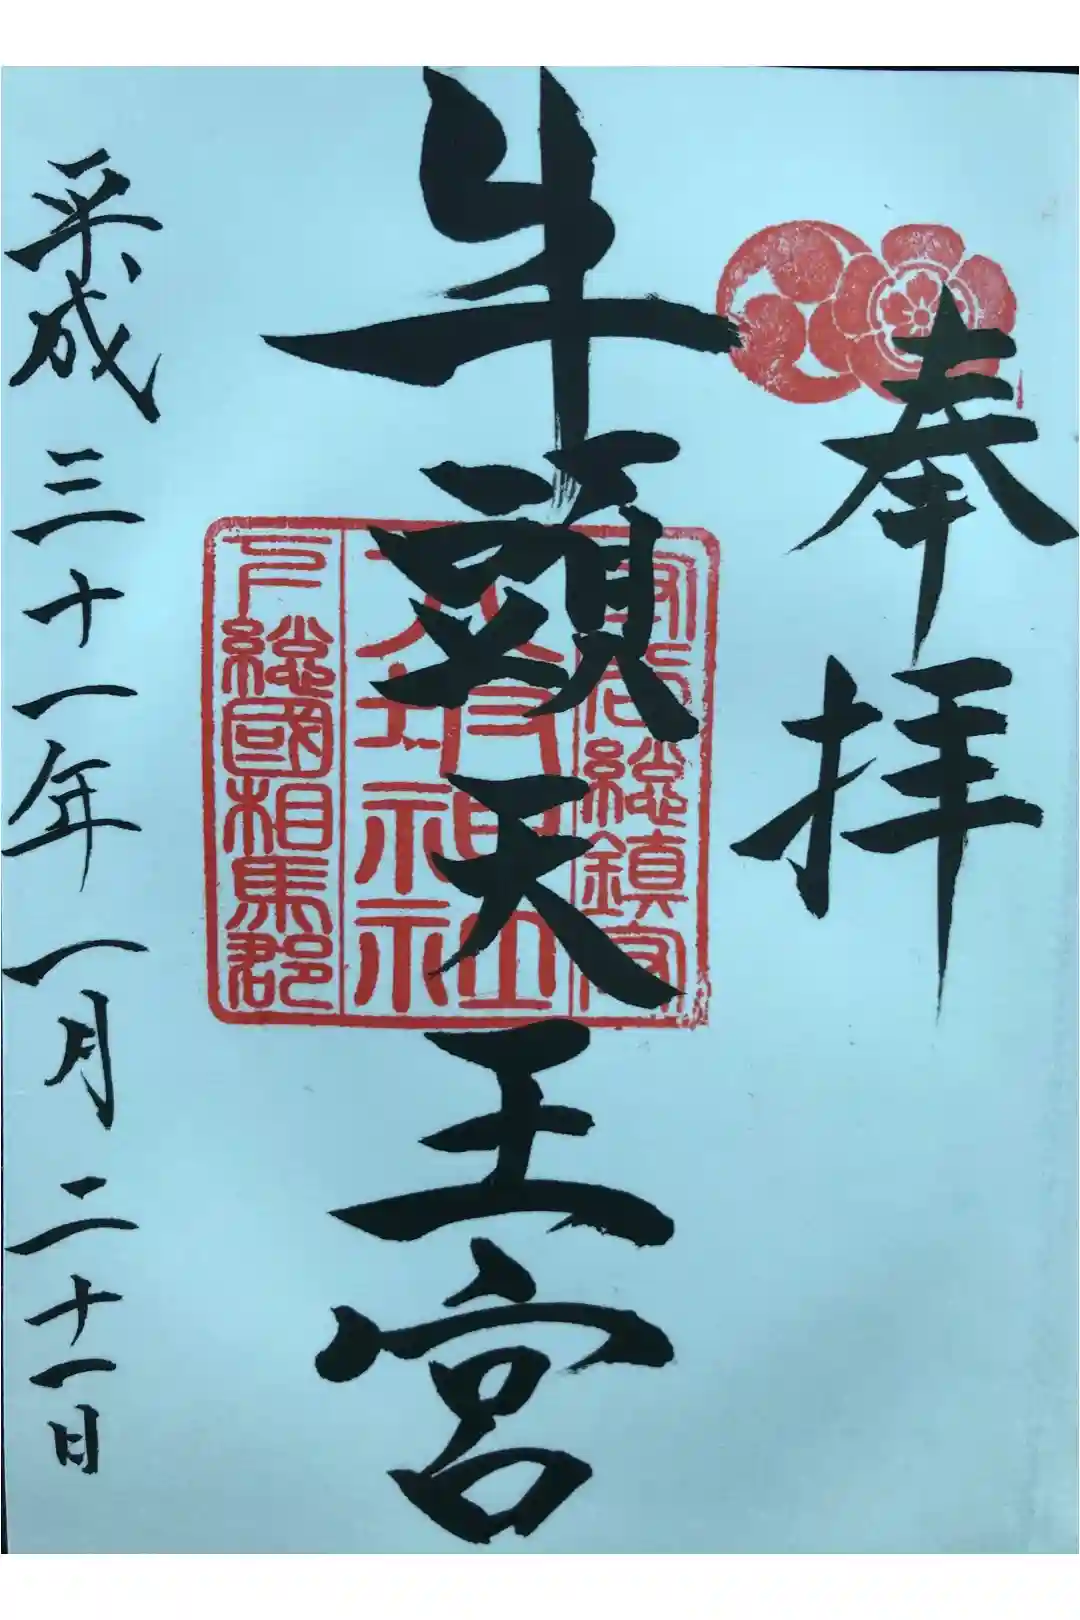 奉拝
牛頭天王宮
守谷総鎮守
八坂神社
下総國相馬郡
平成三十一年一月二十一日